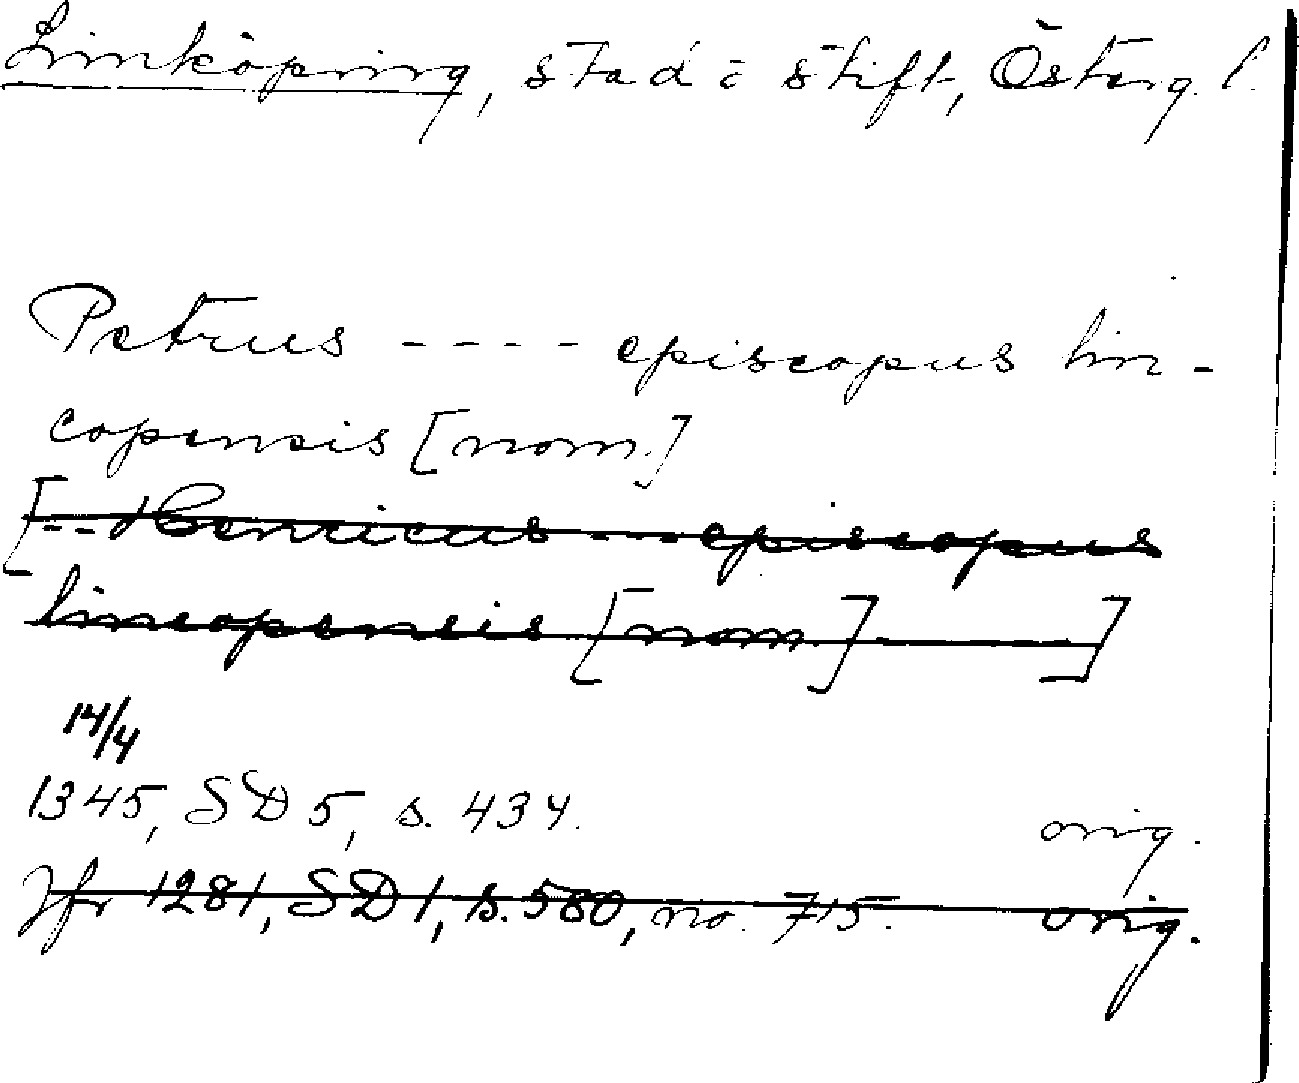 Linköping, stad o stift, Österg. l.
Petrus ---- episcopus lin-
copensis [nom.]
[-- Henricus --- episcopus
lincopensis [nom.] ]
14/4
1345, SD 5, s. 434. orig.
Jfr 1281, SD 1, s. 580, no. 715. orig.